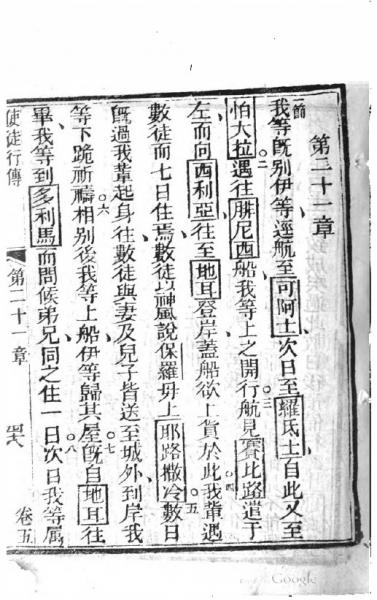 第二十一章
一節
我等既別伊等逕航至可阿士次日至羅氏士自此又至
怕大拉。二遇往腓尼西船我等上之開行。三航見賽比路遣于
左而向西利亞往至地耳登岸蓋船欲上貨於此。四我輩遇
數徒而七日住焉數徒以神風說保羅毋上耶路撒冷。五數日
既過我輩起身往數徒與妻及兒子皆送至城外到岸我
等下跪祈禱。六相別後我等上船伊等歸其屋。七既自地耳往
畢我等到多利馬而問候弟兄同之住一日。八次日我等屬
使徒行傳
第二十一章
卷五
Google